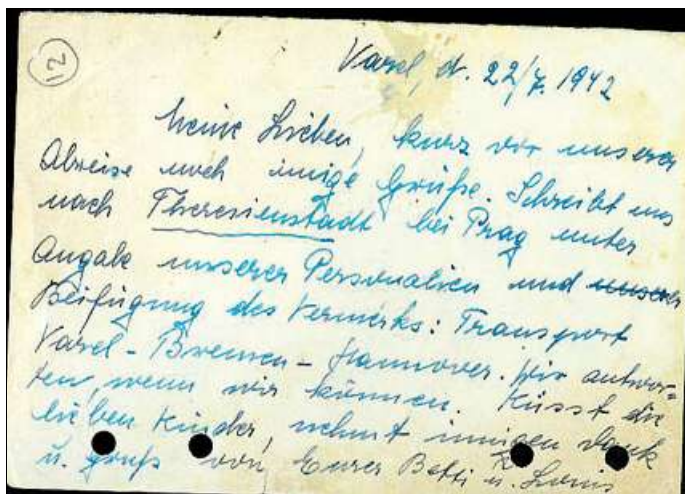 12
Varel, d. 22/7. 1942
Meine Lieben, kurz vor unserer
Abreise noch innige Grüße. Schreibt uns
nach Theresienstadt bei Prag unter
Angabe unserer Personalien und unserer
Beifügung des Vermerks: Transport
Varel - Bremen - Hannover. Wir antwor-
ten, wenn wir können. Küsst die
lieben Kinder, nehmt innigen Dank
u. Gruß von Eurer Betti u. Louis